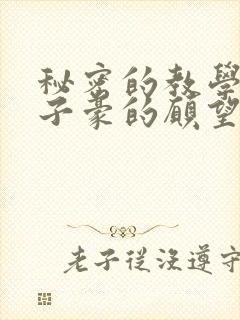 秘密的教學
子豪的願望
老子從沒遵守